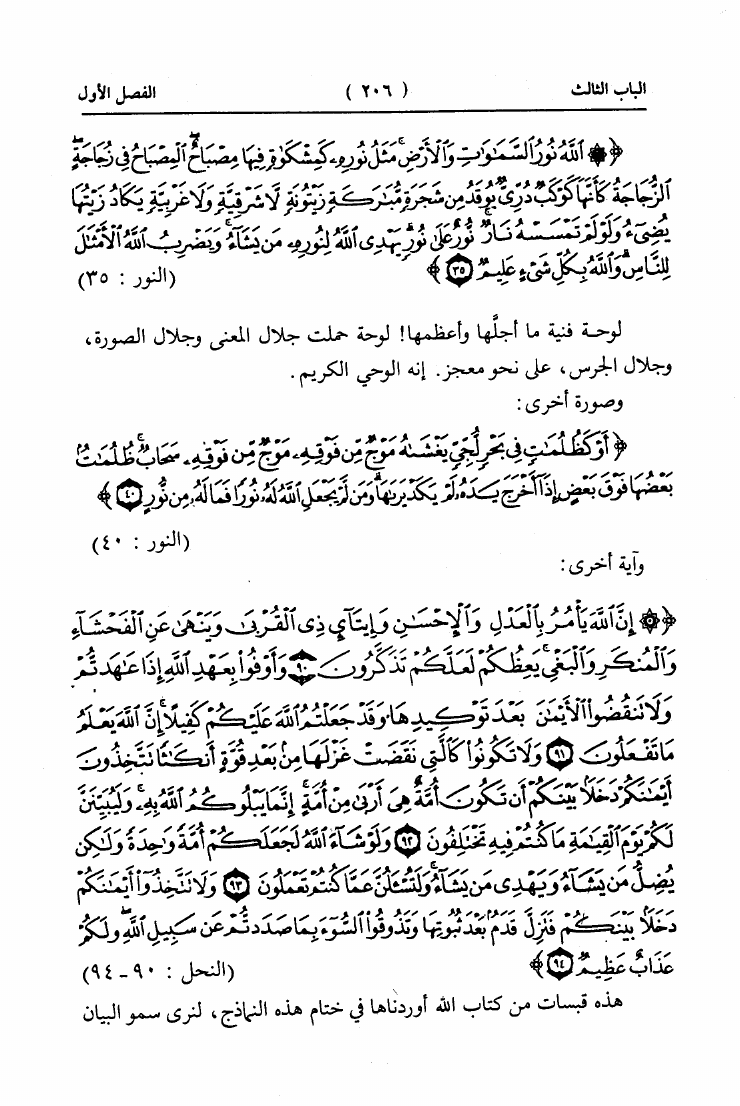 الباب الثالث ( ٢٠٦ ) الفصل الأول
﴿ ۞ ٱللَّهُ نُورُ ٱلسَّمَٰوَٰتِ وَٱلْأَرْضِ ۚ مَثَلُ نُورِهِۦ كَمِشْكَوٰةٍ فِيهَا مِصْبَاحٌ ۖ ٱلْمِصْبَاحُ فِى زُجَاجَةٍ ۖ
ٱلزُّجَاجَةُ كَأَنَّهَا كَوْكَبٌ دُرِّىٌّ يُوقَدُ مِن شَجَرَةٍ مُّبَٰرَكَةٍ زَيْتُونَةٍ لَّا شَرْقِيَّةٍ وَلَا غَرْبِيَّةٍ يَكَادُ زَيْتُهَا
يُضِىٓءُ وَلَوْ لَمْ تَمْسَسْهُ نَارٌ ۚ نُّورٌ عَلَىٰ نُورٍ ۗ يَهْدِى ٱللَّهُ لِنُورِهِۦ مَن يَشَآءُ ۚ وَيَضْرِبُ ٱللَّهُ ٱلْأَمْثَٰلَ
لِلنَّاسِ ۗ وَٱللَّهُ بِكُلِّ شَىْءٍ عَلِيمٌ ٣٥ ﴾ (النور : ٣٥)
لوحة فنية ما أجلَّها وأعظمها! لوحة حملت جلال المعنى وجلال الصورة،
وجلال الجرس، على نحو معجز. إنه الوحي الكريم.
وصورة أخرى:
﴿ أَوْ كَظُلُمَٰتٍ فِى بَحْرٍ لُّجِّىٍّ يَغْشَىٰهُ مَوْجٌ مِّن فَوْقِهِۦ مَوْجٌ مِّن فَوْقِهِۦ سَحَابٌ ۚ ظُلُمَٰتٌۢ
بَعْضُهَا فَوْقَ بَعْضٍ إِذَآ أَخْرَجَ يَدَهُۥ لَمْ يَكَدْ يَرَىٰهَا ۗ وَمَن لَّمْ يَجْعَلِ ٱللَّهُ لَهُۥ نُورًا فَمَا لَهُۥ مِن نُّورٍ ٤٠ ﴾
(النور : ٤٠)
وآية أخرى:
﴿ ۞ إِنَّ ٱللَّهَ يَأْمُرُ بِٱلْعَدْلِ وَٱلْإِحْسَٰنِ وَإِيتَآئِ ذِى ٱلْقُرْبَىٰ وَيَنْهَىٰ عَنِ ٱلْفَحْشَآءِ
وَٱلْمُنكَرِ وَٱلْبَغْىِ ۚ يَعِظُكُمْ لَعَلَّكُمْ تَذَكَّرُونَ ٩٠ وَأَوْفُوا۟ بِعَهْدِ ٱللَّهِ إِذَا عَٰهَدتُّمْ
وَلَا تَنقُضُوا۟ ٱلْأَيْمَٰنَ بَعْدَ تَوْكِيدِهَا وَقَدْ جَعَلْتُمُ ٱللَّهَ عَلَيْكُمْ كَفِيلًا ۚ إِنَّ ٱللَّهَ يَعْلَمُ
مَا تَفْعَلُونَ ٩١ وَلَا تَكُونُوا۟ كَٱلَّتِى نَقَضَتْ غَزْلَهَا مِنۢ بَعْدِ قُوَّةٍ أَنكَٰثًا تَتَّخِذُونَ
أَيْمَٰنَكُمْ دَخَلًۢا بَيْنَكُمْ أَن تَكُونَ أُمَّةٌ هِىَ أَرْبَىٰ مِنْ أُمَّةٍ ۚ إِنَّمَا يَبْلُوكُمُ ٱللَّهُ بِهِۦ ۚ وَلَيُبَيِّنَنَّ
لَكُمْ يَوْمَ ٱلْقِيَٰمَةِ مَا كُنتُمْ فِيهِ تَخْتَلِفُونَ ٩٢ وَلَوْ شَآءَ ٱللَّهُ لَجَعَلَكُمْ أُمَّةً وَٰحِدَةً وَلَٰكِن
يُضِلُّ مَن يَشَآءُ وَيَهْدِى مَن يَشَآءُ ۚ وَلَتُسْـَٔلُنَّ عَمَّا كُنتُمْ تَعْمَلُونَ ٩٣ وَلَا تَتَّخِذُوٓا۟ أَيْمَٰنَكُمْ
دَخَلًۢا بَيْنَكُمْ فَتَزِلَّ قَدَمٌۢ بَعْدَ ثُبُوتِهَا وَتَذُوقُوا۟ ٱلسُّوٓءَ بِمَا صَدَدتُّمْ عَن سَبِيلِ ٱللَّهِ ۖ وَلَكُمْ
عَذَابٌ عَظِيمٌ ٩٤ ﴾ (النحل : ٩٠ - ٩٤)
هذه قبسات من كتاب الله أوردناها في ختام هذه النماذج، لنرى سمو البيان